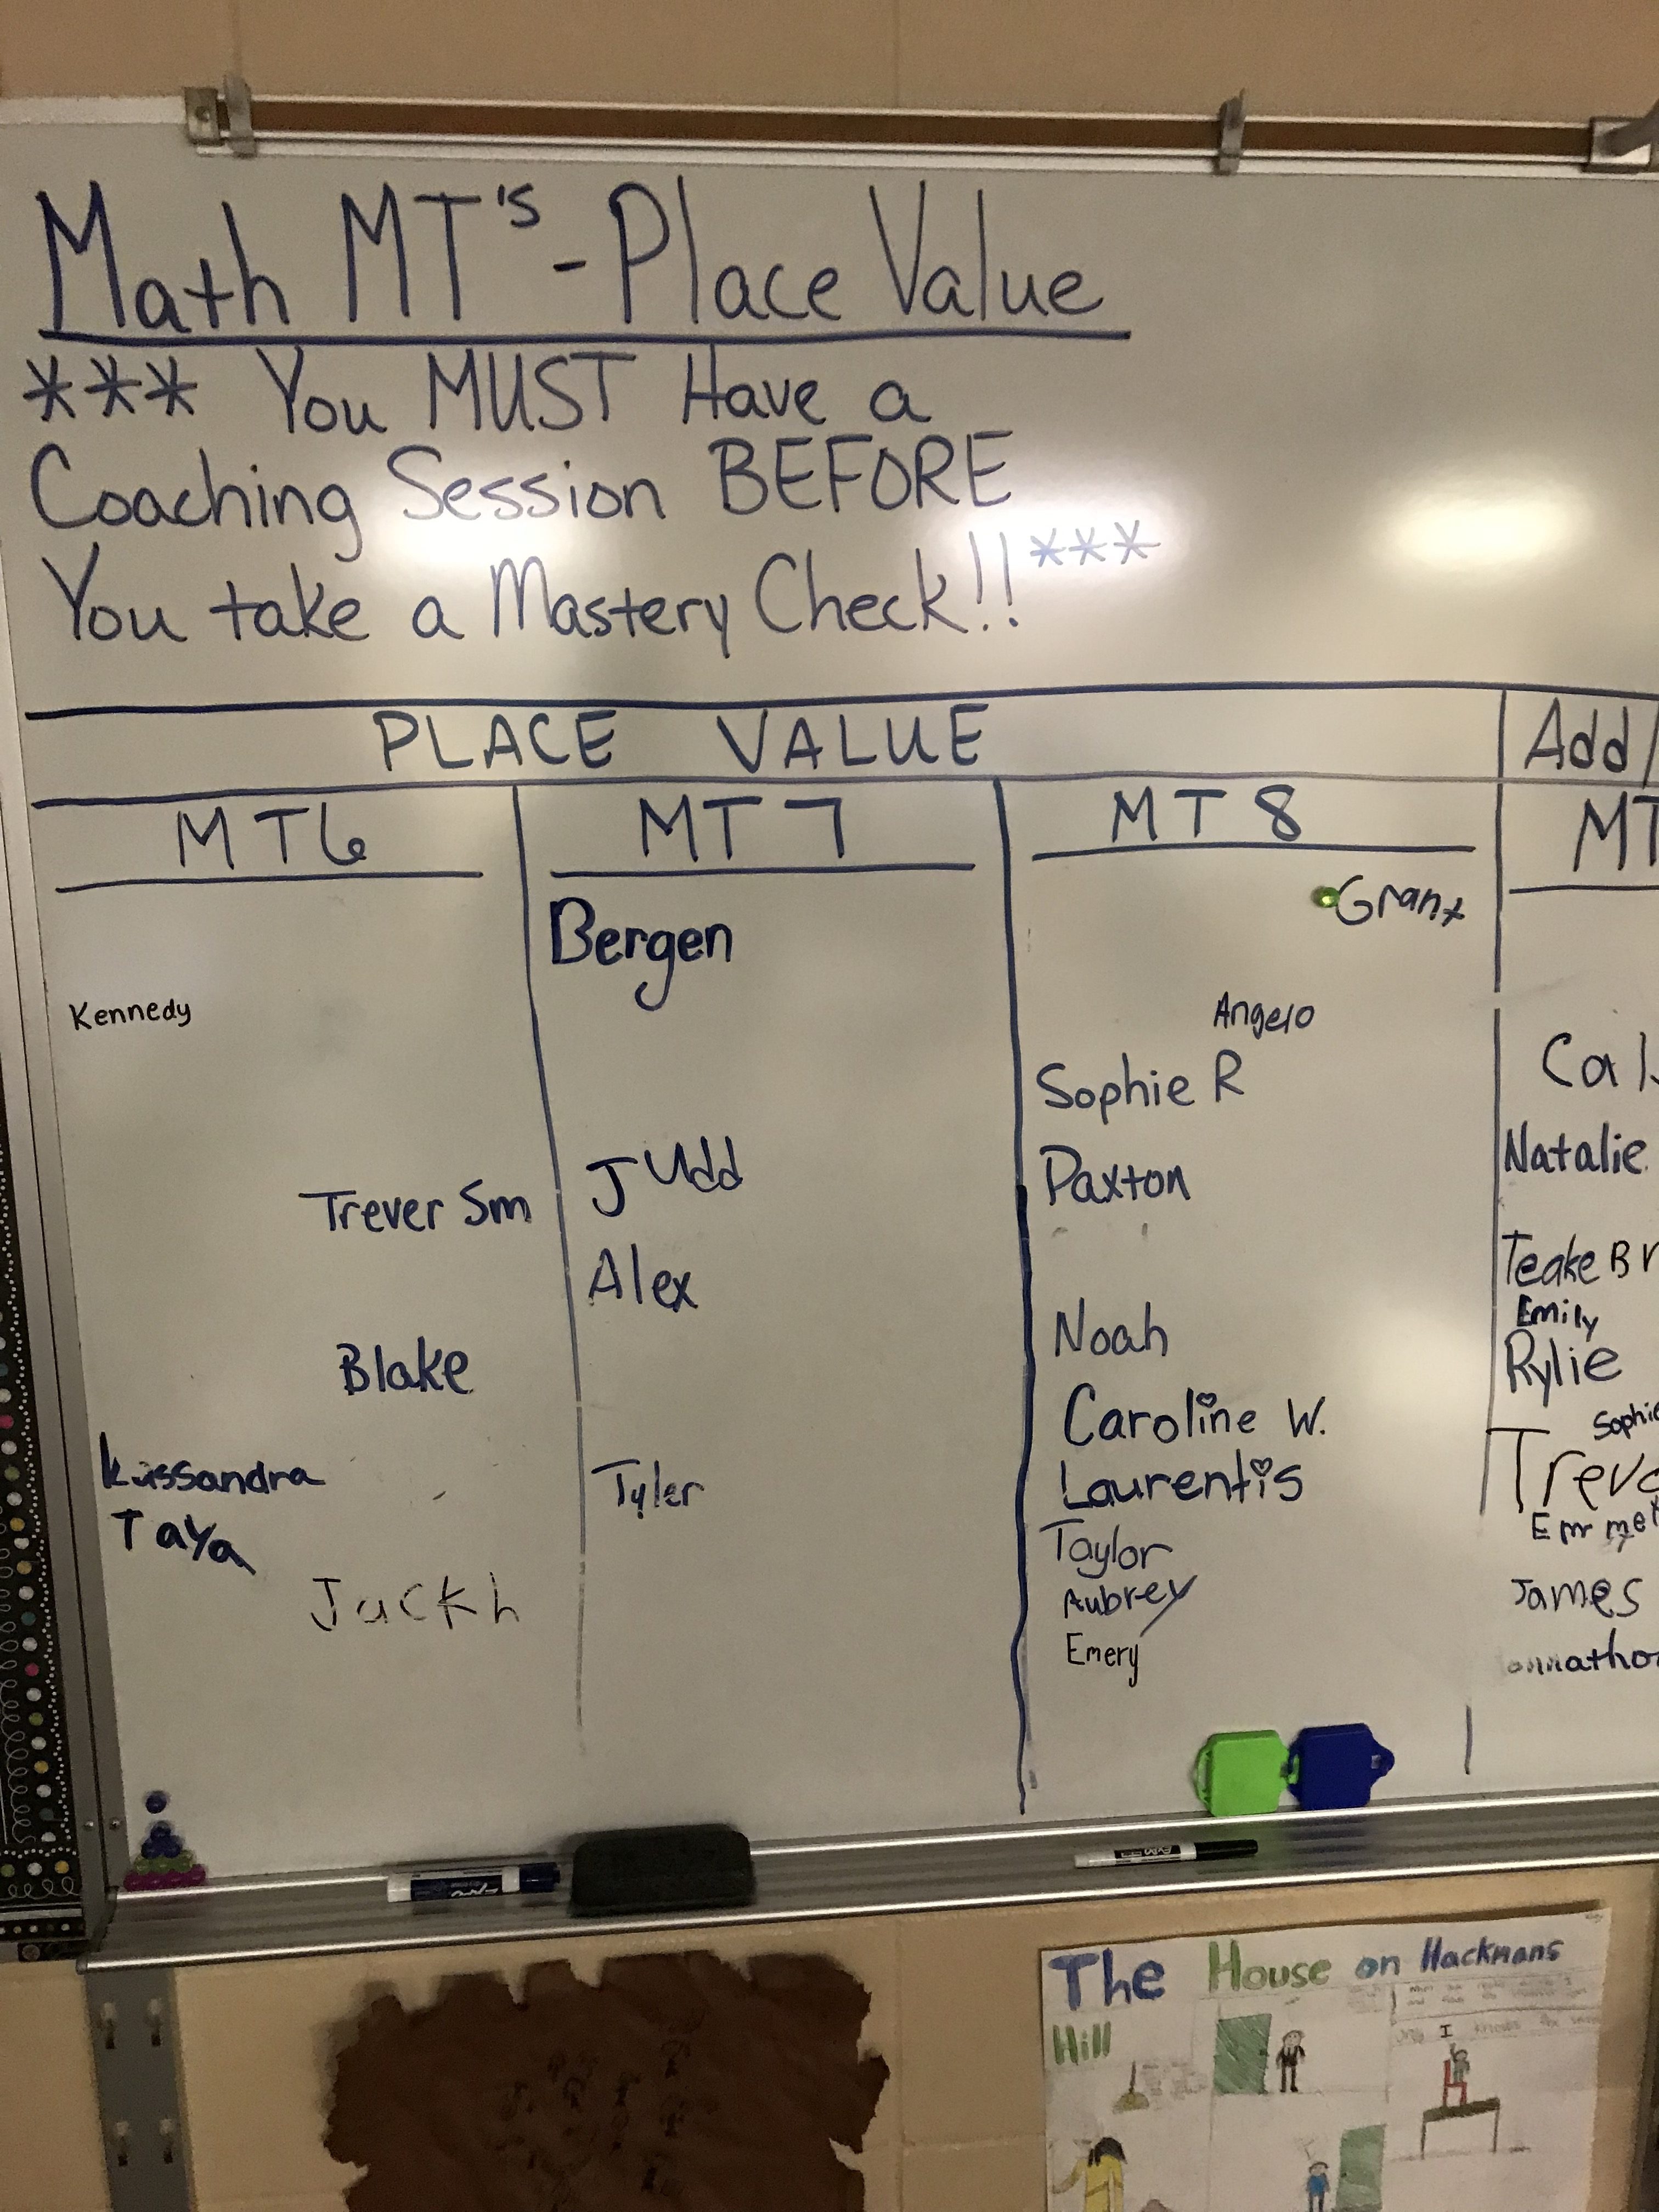 Math MT's - Place Value
*** You MUST Have a
Coaching Session BEFORE
You take a Mastery Check!! ***
PLACE VALUE
Add/
MT6
MT7
MT8
MT
Kennedy
Trever Sm
Blake
Kassandra
Taya
Jackh
Bergen
Judd
Alex
Tyler
Grant
Angelo
Sophie R
Paxton
Noah
Caroline W.
Laurentis
Taylor
Aubrey
Emery
Cal
Natalie
Teake Br
Emily
Rylie
Sophie
Trevo
Emmet
James
The House on Hackmans
Hill